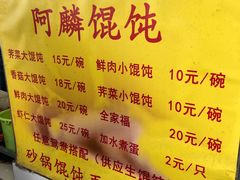 阿麟馄饨
荠菜大馄饨 15元/碗 鲜肉小馄饨 10元/碗
香菇大馄饨 18元/碗 荠菜小馄饨 10元/碗
鲜肉大馄饨 20元/碗 全家福 20元/碗
虾仁大馄饨 25元/碗 加水煮蛋 2元/只
任意鸳鸯搭配（供应生馄饨
砂锅馄饨